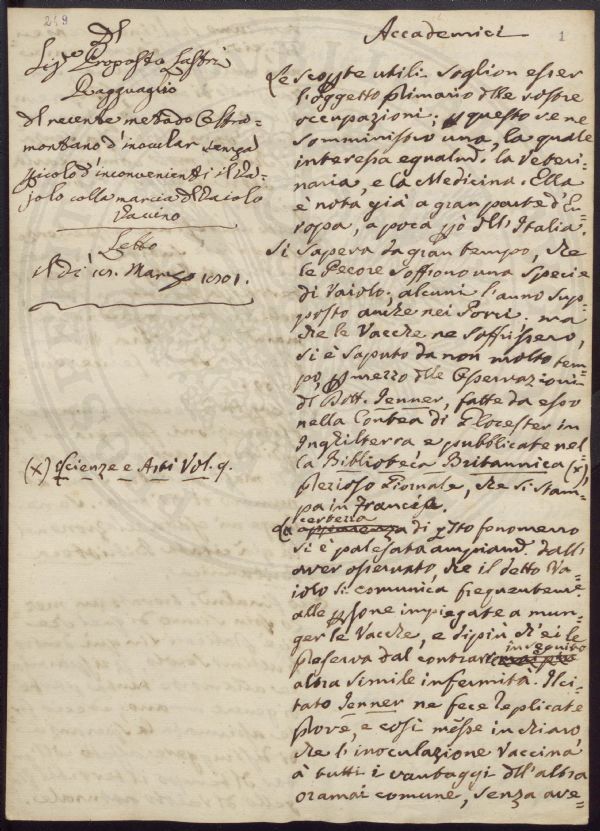 249
1
Del
Sig.re Proposto Lastri
Ragguaglio
Del recente metodo Oltra=
montano d'inocular senza
picolo d'inconvenienti il Va=
jolo colla marcia del Vaiolo
Vacino
Letto
Adi Marzo 1801.
(x) Scienze e Arti Vol. 9.
Accademici
Le scopte utili soglion esser
l'oggetto primario dlle vostre
occupazioni; questo ve ne
somministro una, la quale
interessa egualmd. la Veteri=
naria, e la Medicina. Ella
è nota già a gran parte d'Eu=
ropa, a poca pò dell'Italia.
Si sapeva da gran tempo, che
le Pecore soffrono una specie
di Vaiolo; alcuni l'anno sup=
posto anche nei Porci. ma
che le Vacche ne soffrissero,
si è saputo da non molto tem=
po, p mezzo dlle Osservazioni
del Dott. Jenner, fatte da esso
nella Contea di Glocester in
Inghilterra e pubblicate nel=
la Biblioteca Britannica (x),
prezioso Giornale, che si stam=
pa in Francese.
certezza
La di qsto fenomeno
si è palesata ampiamd. dall'
aver osservato, che il detto Va=
iolo si comunica frequenteme.
alle psone impiegate a mun=
ger le Vacche, e dipiù ch'ei le
in seguito
preserva dal contrarre
altra simile infermità. Il ci=
tato Jenner ne fece replicate
prove, e così messe in chiaro,
che l'inoculazione Vaccina
à tutti i vantaggi dell'altra
oramai comune, senza ave=